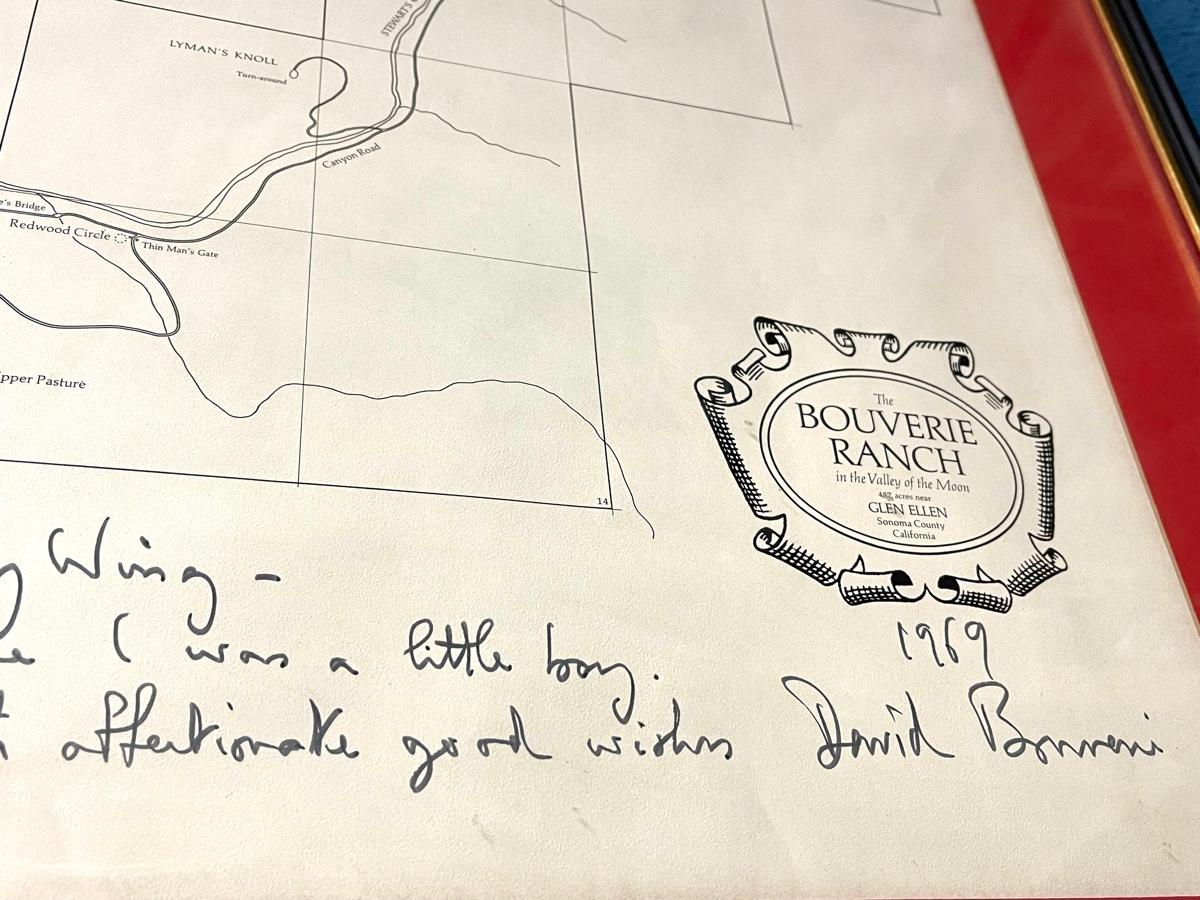 STEWART'S
LYMAN'S KNOLL
Turn-around
Canyon Road
e's Bridge
Redwood Circle
Thin Man's Gate
pper Pasture
14
The
BOUVERIE
RANCH
in the Valley of the Moon
acres near
GLEN ELLEN
Sonoma County
California
y Wing –
1969
I was a little boy.
affectionate good wishes David Bouverie